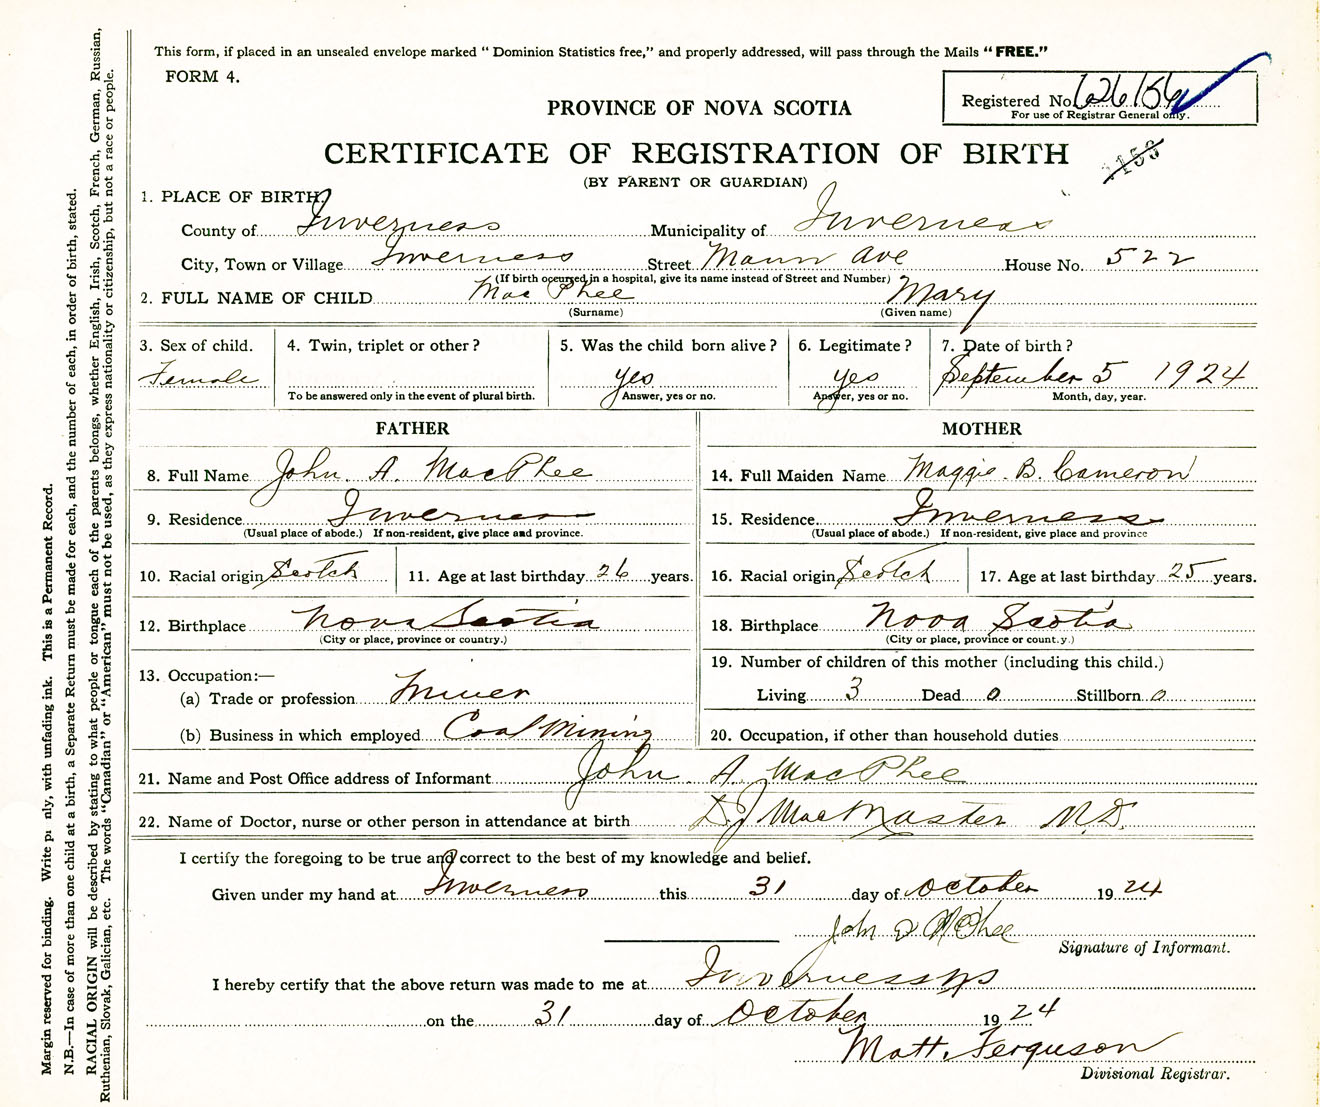 This form, if placed in an unsealed envelope marked "Dominion Statistics free," and properly addressed, will pass through the Mails "FREE."
FORM 4.
Registered No. 626156
For use of Registrar General only.
PROVINCE OF NOVA SCOTIA
CERTIFICATE OF REGISTRATION OF BIRTH
(BY PARENT OR GUARDIAN)
1. PLACE OF BIRTH
County of Inverness Municipality of Inverness
City, Town or Village Inverness Street Mann Ave House No. 522
(If birth occurred in a hospital, give its name instead of Street and Number)
2. FULL NAME OF CHILD Mac Phee Mary
(Surname) (Given name)
3. Sex of child. 4. Twin, triplet or other? 5. Was the child born alive? 6. Legitimate? 7. Date of birth?
Female yes yes September 5 1924
To be answered only in the event of plural birth. Answer, yes or no. Answer, yes or no. Month, day, year.
FATHER MOTHER
8. Full Name John. A. MacPhee 14. Full Maiden Name Maggie. B. Cameron
9. Residence Inverness 15. Residence Inverness
(Usual place of abode.) If non-resident, give place and province. (Usual place of abode.) If non-resident, give place and province
10. Racial origin Scotch 11. Age at last birthday 26 years. 16. Racial origin Scotch 17. Age at last birthday 25 years.
12. Birthplace Nova Scotia 18. Birthplace Nova Scotia
(City or place, province or country.) (City or place, province or count.y.)
13. Occupation:— 19. Number of children of this mother (including this child.)
(a) Trade or profession Miner Living 3 Dead 0 Stillborn 0
(b) Business in which employed Coal Mining 20. Occupation, if other than household duties
21. Name and Post Office address of Informant John. A. MacPhee
22. Name of Doctor, nurse or other person in attendance at birth D.J MacMaster M.D.
I certify the foregoing to be true and correct to the best of my knowledge and belief.
Given under my hand at Inverness this 31 day of October 1924
John A McPhee
Signature of Informant.
I hereby certify that the above return was made to me at Inverness NS
on the 31 day of October 1924
Matt. Ferguson
Divisional Registrar.
Margin reserved for binding. Write nly, with unfading ink. This is a Permanent Record.
N.B.—In case of more than one child at a birth, a Separate Return must be made for each, and the number of each, in order of birth, stated.
RACIAL ORIGIN will be described by stating to what people or tongue each of the parents belongs, whether English, Irish, Scotch, French, German, Russian,
Ruthenian, Slovak, Galician, etc. The words "Canadian" or "American" must not be used, as they express nationality or citizenship, but not a race or people.